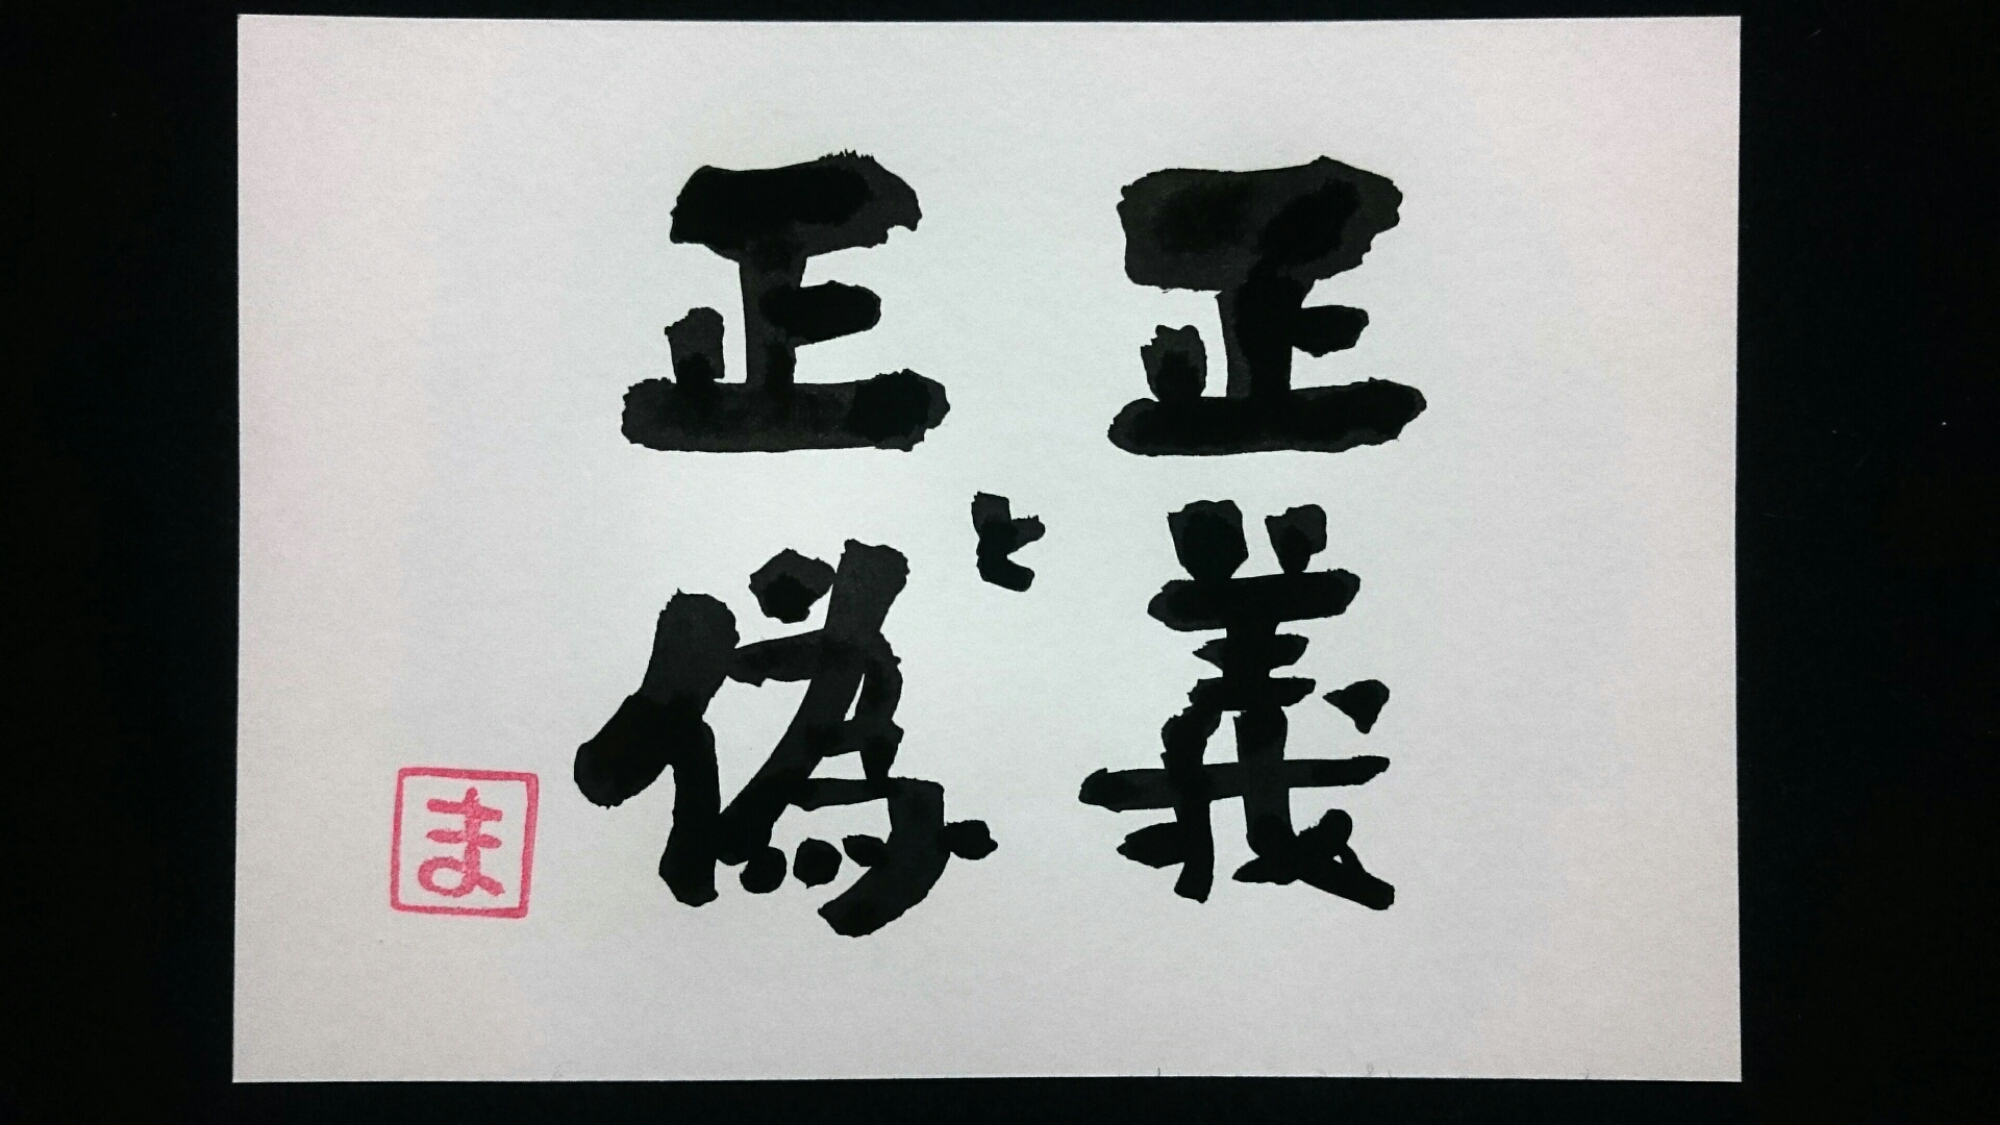 正義
と
正偽
ま